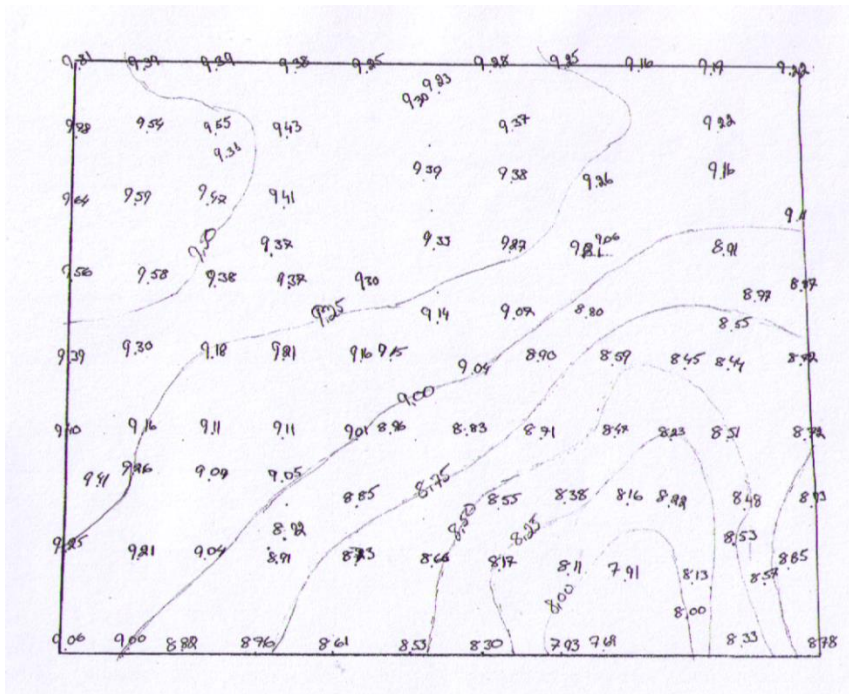 9.81 9.39 9.39 9.38 9.25 9.28 9.25 9.16 9.19 9.22
9.23
9.30
9.88 9.54 9.55 9.43 9.37 9.22
9.31
9.39 9.38 9.26 9.16
9.64 9.59 9.42 9.41
9.11
9.50 9.37 9.33 9.27 9.06 8.91
9.56 9.58 9.38 9.37 9.30
8.77
9.25 9.14 9.07 8.80 8.55
9.39 9.30 9.18 9.21 9.16 9.15 9.04 8.90 8.59 8.45 8.44 8.72
9.00
9.16 9.11 9.11 9.01 8.96 8.83 8.71 8.47 8.23 8.51 8.72
9.41 9.26 9.09 9.05 8.75
8.85 8.55 8.38 8.16 8.48
8.50 8.25
8.92 8.53
9.25 9.21 9.04 8.91 8.66 8.17 8.11 7.91 8.13 8.57 8.65
8.00 8.00
9.06 9.00 8.82 8.76 8.61 8.53 8.30 7.93 8.33 8.78